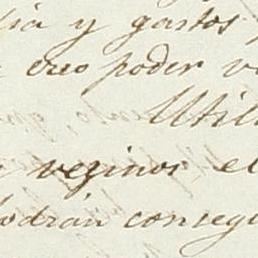 y gastos
creo poder v
Utili
vezinos el
odrán consegu